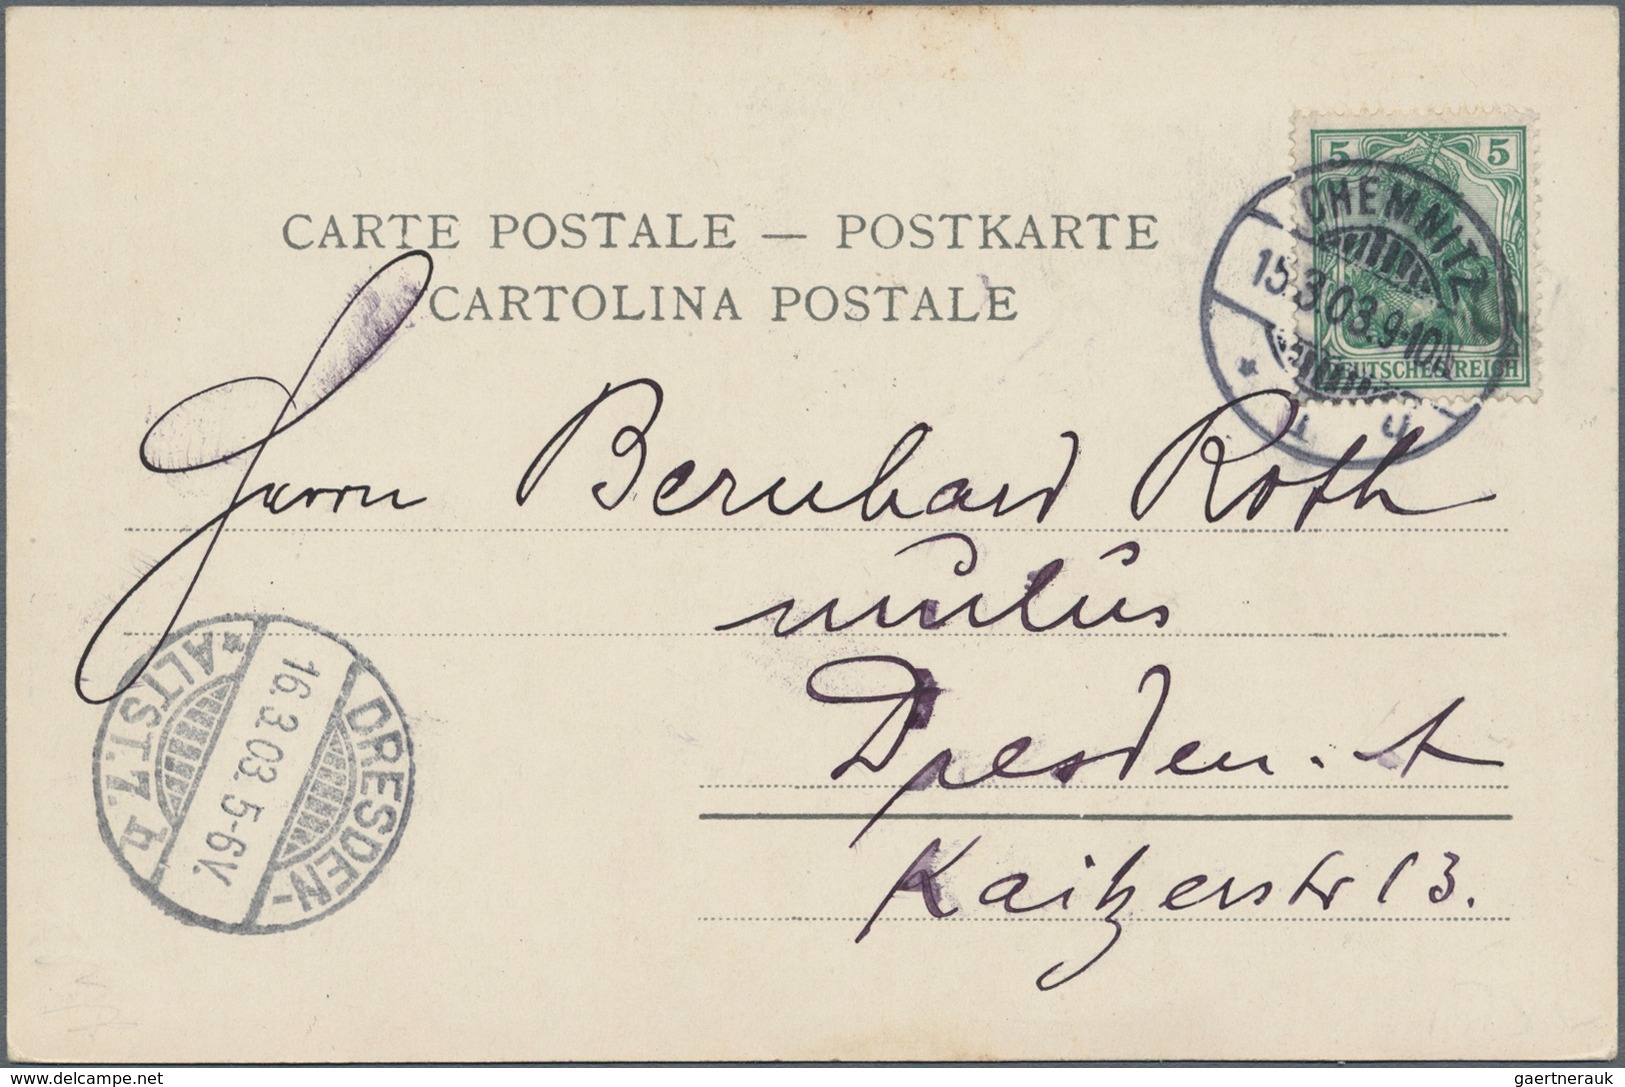 CARTE POSTALE — POSTKARTE
CARTOLINA POSTALE
5 5
DEUTSCHES REICH
CHEMNITZ
15.3.03.9-10N
* 1
Herrn Bernhard Roth
Dresden. A
Kaitzerstr 13.
DRESDEN-
*ALTST. 7. h
16.3.03. 5-6V.
© www.delcampe.net
gaertnerauk